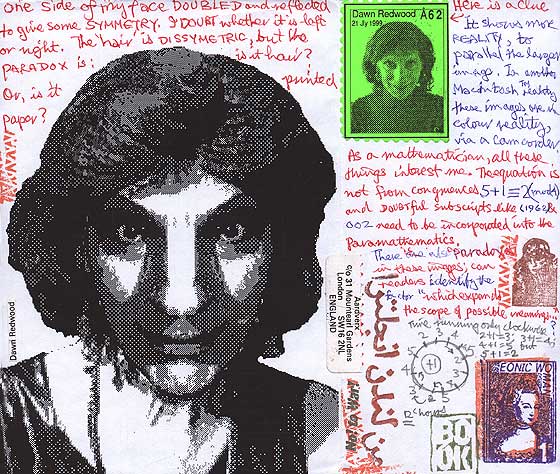 one side of my face DOUBLED and reflected
to give some SYMMETRY. I DOUBT whether it is left
or right. The hair is DISSYMETRIC, but the
PARADOX is: is it hair?
Or, is it printed
paper?
Dawn Redwood A62
21 Jly 1999
Here is a clue
It shows more
REALITY, to
parallel the larger
image. In another
Macintosh™ reality
these images are in
colour reality,
via a camcorder.
As a mathematician, all these
things interest me. The equation is
not from congruences 5+1≡2 (mod 4)
and DOUBTFUL subscripts like
002 need to be incorporated into the
Paramathematics.
There are also paradox
in these images; can
readers identify the
factor which expands
the scope of possible meanings
Time running only clockwise
2+1=3, 3+1=4,
4+1=5 but
5+1=2
Aardverx
C/o 31 Mountearl Gardens
London SW16 2NL
ENGLAND
Dawn Redwood
من لندن انجلترا
No To War!
hours
BO
OK
EONIC WO
1